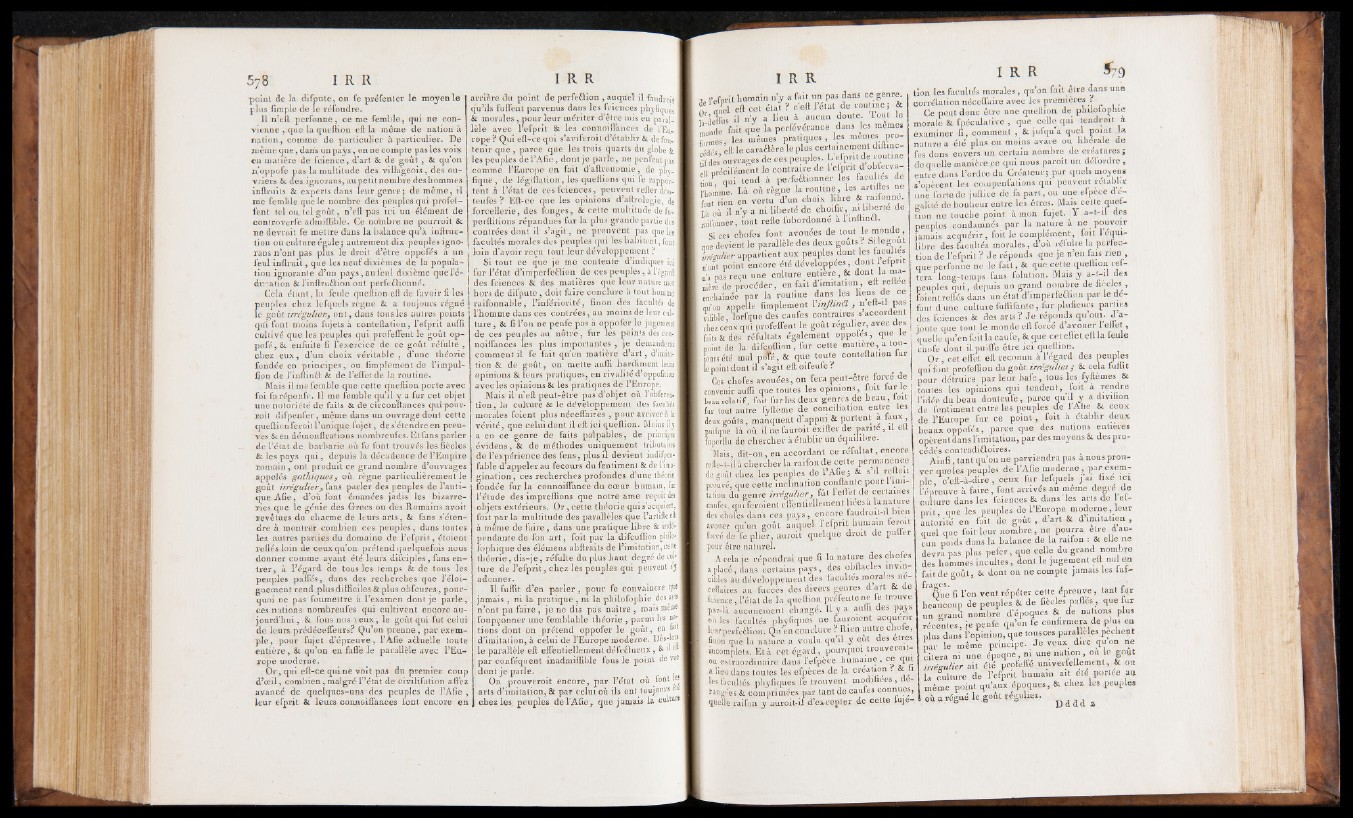 578 I R R
point de la diſpute, on ſe préſenter le moyen le
plus ſimple de le réſoudre.
Il n'eſt perſonne, ce me ſemble, qui ne convienne
, que la queſtion eſt la même de nation à
nation, comme de particulier à particulier. De
même que, dans un pays, on ne compte pas les voix
en matière de ſcience, d'art & de goût, & qu'on
n'oppoſe pas la multitude des villageois, des ouvriers
& des ignorans, au petit nombre des hommes
inſtruits & experts dans leur genre; de même, il
me ſemble que le nombre des peuples qui profeſſent
tel ou tel goût, n'eſt pas ici un élément de
controverſe admiſſible. Ce nombre ne pourroit &
ne devroit ſe mettre dans la balance qu'à inſtruction
ou culture égale; autrement dix peuples ignorans
n'ont pas plus le droit d'être oppoſés à un
ſeul inſtruit, que les neuf dixièmes de la population
ignorante d'un pays, au ſeul dixième que l'éducation
& l'inſtruction ont perfectionné.
Cela étant, la ſeule queſtion eſt de ſavoir ſi les
peuples chez leſquels règne & a toujours régné
le goût irrégulier, ont, dans tous les autres points
qui ſont moins ſujets à conteſtation, l'eſprit auſſi
cultivé que les peuples qui profeſſent le goût oppoſé,
& enſuite ſi l'exercice de ce goût réſulte,
chez eux, d'un choix véritable, d'une théorie
fondée en principes, ou ſimplement de l'impulſion
de l'inſtinct & de l'effet de la routine.
Mais il me ſemble que cette queſtion porte avec
ſoi ſa réponſe. Il me ſemble qu'il y a ſur cet objet
une notoriété de faits & de circonſtances qui pourroit
diſpenſer, même dans un ouvrage dont cette
queſtion ſeroit l'unique ſujet, de s'étendre en preuves
& en démonſtrations nombreuſes. Et ſans parler
de l'état de barbarie où ſe ſont trouvés les ſiècles
& les pays qui, depuis la décadence de l'Empire
romain, ont produit ce grand nombre d'ouvrages
appelés gothiques, où règne particulièrement le
goût irrégulier, ſans parler des peuples de l'antique
Aſie, d'où ſont émanées jadis les bizarreries
que le génie des Grecs ou des Romains avoit
revêtues du charme de leurs arts, & ſans s'étendre
à montrer combien ces peuples, dans toutes
les autres parties du domaine de l'eſprit, étoient
reſtés loin de ceux qu'on prétend quelquefois nous
donner comme ayant été leurs diſciples, ſans entrer,
à l'égard de tous les temps & de tous les
peuples paſſés, dans des recherches que l'éloignement
rend plus difficiles & plus obſcures, pourquoi
ne pas ſoumettre à l'examen dont je parle,
des nations nombreuſes qui cultivent encore aujourd'hui,
& ſous nos yeux, le goût qui fut celui
de leurs prédéceſſeurs? Qu'on prenne, par exemple,
pour ſujet d'épreuve, l'Aſie actuelle toute
entière, & qu'on en faſſe le parallèle avec l'Europe
moderne.
Or, qui eſt-ce qui ne voit pas du premier coup
d'œil, combien, malgré l'état de civiliſation aſſez
avancé de quelques-uns des peuples de l'Aſie,
leur eſprit & leurs connoiſſances ſont encore en
I R R
arrière du point de perfection, auquel il faudroit
qu'ils fuſſent parvenus dans les ſciences phyſiques
& morales, pour leur mériter d'être mis en parallèle
avec l'eſprit & les connoiſſances de l'Europe
? Qui eſt-ce qui s'aviſeroit d'établir & de ſoutenir
que, parce que les trois quarts du globe &
les peuples de l'Aſie, dont je parle, ne penſent pas
comme l'Europe en fait d'aſtronomie, de phyſique,
de légiſlation, les queſtions qui ſe rapportent
à l'état de ces ſciences, peuvent reſter douteuſes
? Eſt-ce que les opinions d'aſtrologie, de
ſorcellerie, des ſonges, & cette multitude de ſuperſtitions
répandues ſur la plus grande partie des
contrées dont il s'agit, ne prouvent pas que les
facultés morales des peuples qui les habitent, ſont
loin d'avoir reçu tout leur développement?
Si tout ce que je me contente d'indiquer ici
ſur l'état d'imperfection de ces peuples, à l'égard
des ſciences & des matières que leur nature met
hors de diſpute, doit faire conclure à tout homme
raiſonnable, l'infériorité, ſinon des facultés de
l'homme dans ces contrées, au moins de leur culture,
& ſi l'on ne penſe pas à oppoſer le jugement
de ces peuples au nôtre, ſur les points des connoiſſances
les plus importantes, je demanderai
comment il ſe fait qu'en matière d'art, d'imitation
& de goût, on mette auſſi hardiment leurs
opinions & leurs pratiques, en rivalité d'oppoſition
avec les opinions & les pratiques de l'Europe.
Mais il n'eſt peut-être pas d'objet où l'obſervation,
la culture & le développement des facultés
morales ſoient plus néceſſaires, pour arriver à la
vérité, que celui dont il eſt ici queſtion. Moins il y
a en ce genre de faits palpables, de principes
évidens, & de méthodes uniquement tributaires
de l'expérience des ſens, plus il devient indiſpenſable
d'appeler au ſecours du ſentiment & de l'imagination,
ces recherches profondes d'une théorie
fondée ſur la connoiſſance du cœur humain, ſur
l'étude des impreſſions que notre ame reçoit des
objets extérieurs. Or, cette théorie qui s'acquiert,
ſoit par la multitude des parallèles que l'artiſte eſt
à même de faire, dans une pratique libre & indépendante
de ſon art, ſoit par la diſcuſſion philoſophique
des élémens abſtraits de l'imitation, cette
théorie, dis-je, réſulte du plus haut degré de culture
de l'eſprit, chez les peuples qui peuvent s'y
adonner.
Il ſuffit d'en parler, pour ſe convaincre que
jamais, ni la pratique, ni la philoſophie des arts
n'ont pu faire, je ne dis pas naître, mais même
ſoupçonner une ſemblable théorie, parmi les nations
dont on prétend oppoſer le goût, en fait
d'imitation, à celui de l'Europe moderne. Dès-lors
le parallèle eſt eſſentiellement défectueux, & il eſt
par conſéquent inadmiſſible ſous le point de vue
dont je parle.
On prouveroit encore, par l'état où ſont les
arts d'imitation, & par celui où ils ont toujours été
chez les peuples de l'Aſie, que jamais la culture
I R R
de l'eſprit humain n'y a fait un pas dans ce genre.
Or, quel eſt cet état? c'eſt l'état de routine; &
là-deſſus il n'y a lieu à aucun doute. Tout le
monde ſait que la perſévérance dans les mêmes
formes, les mêmes pratiques, les mêmes procédés,
eſt le caractère le plus certainement diſtinctif
des ouvrages de ces peuples. L'eſprit de routine
eſt préciſément le contraire de l'eſprit d'obſervation,
qui tend à perfectionner les facultés de
l'homme. Là où règne la routine, les artiſtes ne
font rien en vertu d'un choix libre & raiſonné.
Là où il n'y a ni liberté de choiſir, ni liberté de
raiſonner, tout reſte ſubordonné à l'inſtinct.
Si ces choſes ſont avouées de tout le monde,
que devient le parallèle des deux goûts? Si le goût
irrégulier appartient aux peuples dont les facultés
n'ont point encore été développées, dont l'eſprit
n'a pas reçu une culture entière, & dont la manière
de procéder, en fait d'imitation, eſt reſtée
enchaînée par la routine dans les liens de ce
qu'on appelle ſimplement l'inſtinct, n'eſt-il pas
riſible, lorſque des cauſes contraires s'accordent
chez ceux qui profeſſent le goût régulier, avec des
faits & des réſultats également oppoſés, que le
point de la diſcuſſion, ſur cette matière, a toujours
été mal poſé, & que toute conteſtation ſur
le point dont il s'agit eſt oiſeuſe?
Ces choſes avouées, on ſera peut-être forcé de
convenir auſſi que toutes les opinions, ſoit ſur le
beau relatif, ſoit ſur les deux genres de beau, ſoit
ſur tout autre ſyſtème de conciliation entre les
deux goûts, manquent d'appui & portent à faux,
puiſque là où il ne ſauroit exiſter de parité, il eſt
ſuperflu de chercher à établir un équilibre.
Mais, dit-on, en accordant ce réſultat, encore
reſte-t-il à chercher la raiſon de cette permanence
de goût chez les peuples de l'Aſie; & s'il reſtoit
prouvé, que cette inclination conſtante pour l'imitation
du genre irrégulier, fût l'effet de certaines
cauſes, qui ſeroient eſſentiellement liées à la nature
des choſes dans ces pays, encore faudroit-il bien
avouer qu'un goût auquel l'eſprit humain ſeroit
forcé de ſe plier, auroit quelque droit de paſſer
pour être naturel.
A cela je répondrai que ſi la nature des choſes
a placé, dans certains pays, des obſtacles invincibles
au développement des facultés morales néceſſaires
au ſuccès des divers genres d'art & de
ſcience, l'état de la queſtion préſente ne ſe trouve
par-là aucunement changé. Il y a auſſi des pays
où les facultés phyſiques ne ſauroient acquérir
leur perfection. Qu'en conclure? Rien autre choſe,
ſinon que la nature a voulu qu'il y eût des êtres
incomplets. Et à cet égard, pourquoi trouveroit-on
extraordinaire dans l'eſpèce humaine, ce qui
a lieu dans toutes les eſpèces de la création? & ſi
les facultés phyſiques ſe trouvent modifiées, dérangées
& comprimées par tant de cauſes connues,
quelle raiſon y auroit-il d'excepter de cette ſujé-
I R R 579
tion les facultés morales, qu'on ſait être dans une
corrélation néceſſaire avec les premières?
Ce peut donc être une queſtion de philoſophie
morale & ſpéculative, que celle qui tendroit à
examiner ſi, comment, & juſqu'à quel point la
nature a été plus ou moins avare ou libérale de
ſes dons envers un certain nombre de créatures;
de quelle manière ce qui nous paroît un déſordre,
entre dans l'ordre du Créateur; par quels moyens
s'opèrent les compenſations qui peuvent rétablir
une ſorte de juſtice de ſa part, ou une eſpèce d'égalité
de bonheur entre les êtres. Mais cette queſtion
ne touche point à mon ſujet. Y a-t-il des
peuples condamnés par la nature à ne pouvoir
jamais acquérir, ſoit le complément, ſoit l'équilibre
des facultés morales, d'où réſulte la perfection
de l'eſprit? Je réponds que je n'en ſais rien,
que perſonne ne le ſait, & que cette queſtion reſtera
long-temps ſans ſolution. Mais y a-t-il des
peuples qui, depuis un grand nombre de ſiècles,
ſoient reſtés dans un état d'imperfection par le défaut
d'une culture ſuffiſante, ſur pluſieurs parties
des ſciences & des arts? Je réponds qu'oui. J'ajoute
que tout le monde eſt forcé d'avouer l'effet,
quelle qu'en ſoit la cauſe, & que cet effet eſt la ſeule
choſe dont il puiſſe être ici queſtion.
Or, cet effet eſt reconnu à l'égard des peuples
qui font profeſſion du goût irrégulier; & cela ſuffit
pour détruire par leur baſe, tous les ſyſtèmes &
toutes les opinions qui tendent, ſoit à rendre
l'idée du beau douteuſe, parce qu'il y a diviſion
de ſentiment entre les peuples de l'Aſie & ceux
de l'Europe ſur ce point, ſoit à établir deux
beaux oppoſés, parce que des nations entières
opèrent dans l'imitation, par des moyens & des procédés
contradictoires.
Ainſi, tant qu'on ne parviendra pas à nous prouver
que les peuples de l'Aſie moderne, par exemple,
c'eſt-à-dire, ceux ſur leſquels j'ai fixé ici
l'épreuve à faire, ſont arrivés au même degré de
culture dans les ſciences & dans les arts de l'eſprit,
que les peuples de l'Europe moderne, leur
autorité en fait de goût, d'art & d'imitation,
quel que ſoit leur nombre, ne pourra être d'aucun
poids dans la balance de la raiſon: & elle ne
devra pas plus peſer, que celle du grand nombre
des hommes incultes, dont le jugement eſt nul en
fait de goût, & dont on ne compte jamais les ſuffrages.
Que ſi l'on veut répéter cette épreuve, tant ſur
beaucoup de peuples & de ſiècles paſſés, que ſur
un grand nombre d'époques & de nations plus
récentes, je penſe qu'on ſe confirmera de plus en
plus dans l'opinion, que tous ces parallèles pèchent
par le même principe. Je veux dire qu'on ne
citera ni une époque, ni une nation, où le goût
irrégulier ait été profeſſé univerſellement, & où
la culture de l'eſprit humain ait été portée au
même point qu'aux époques, & chez les peuples
où a régné le goût régulier.
D d d d 2